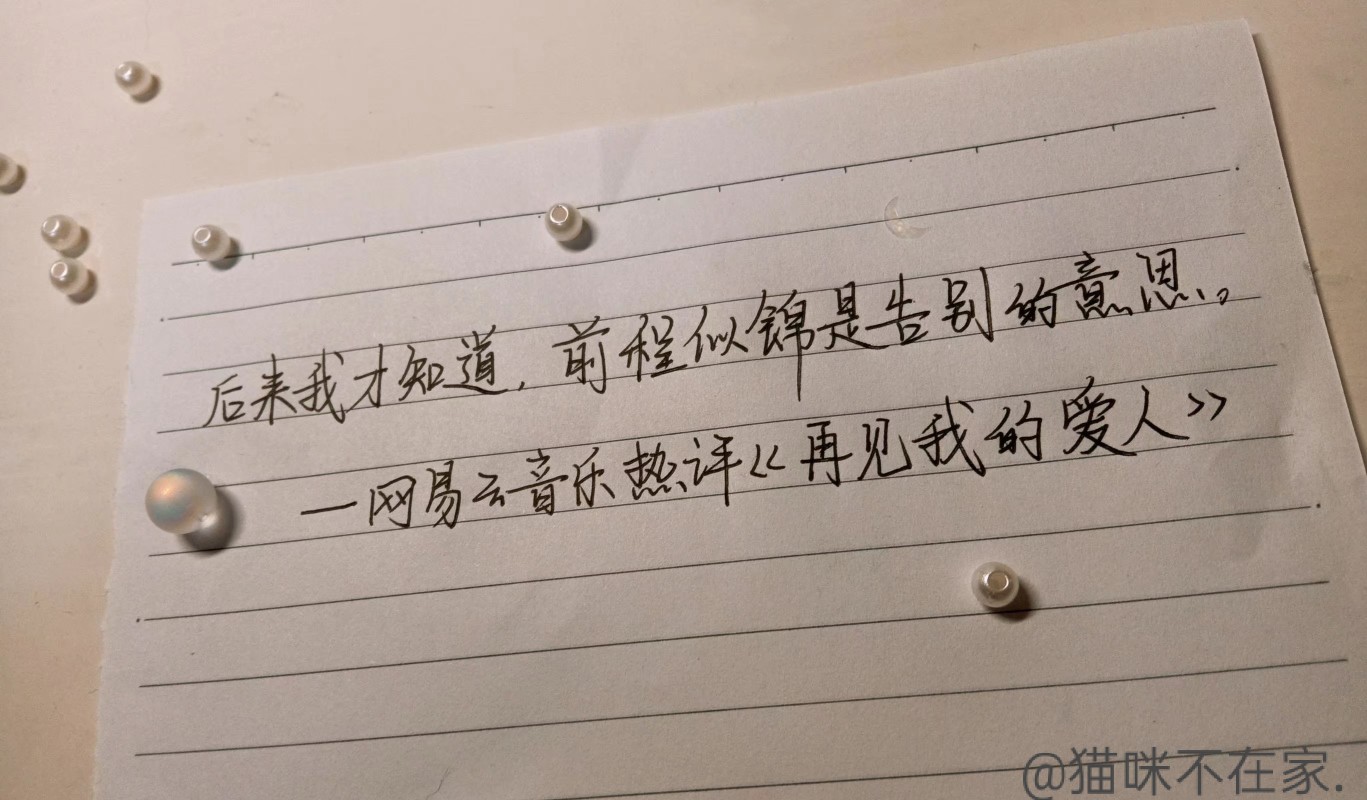 后来我才知道，前程似锦是告别的意思。
—网易云音乐热评《再见我的爱人》
@猫咪不在家.